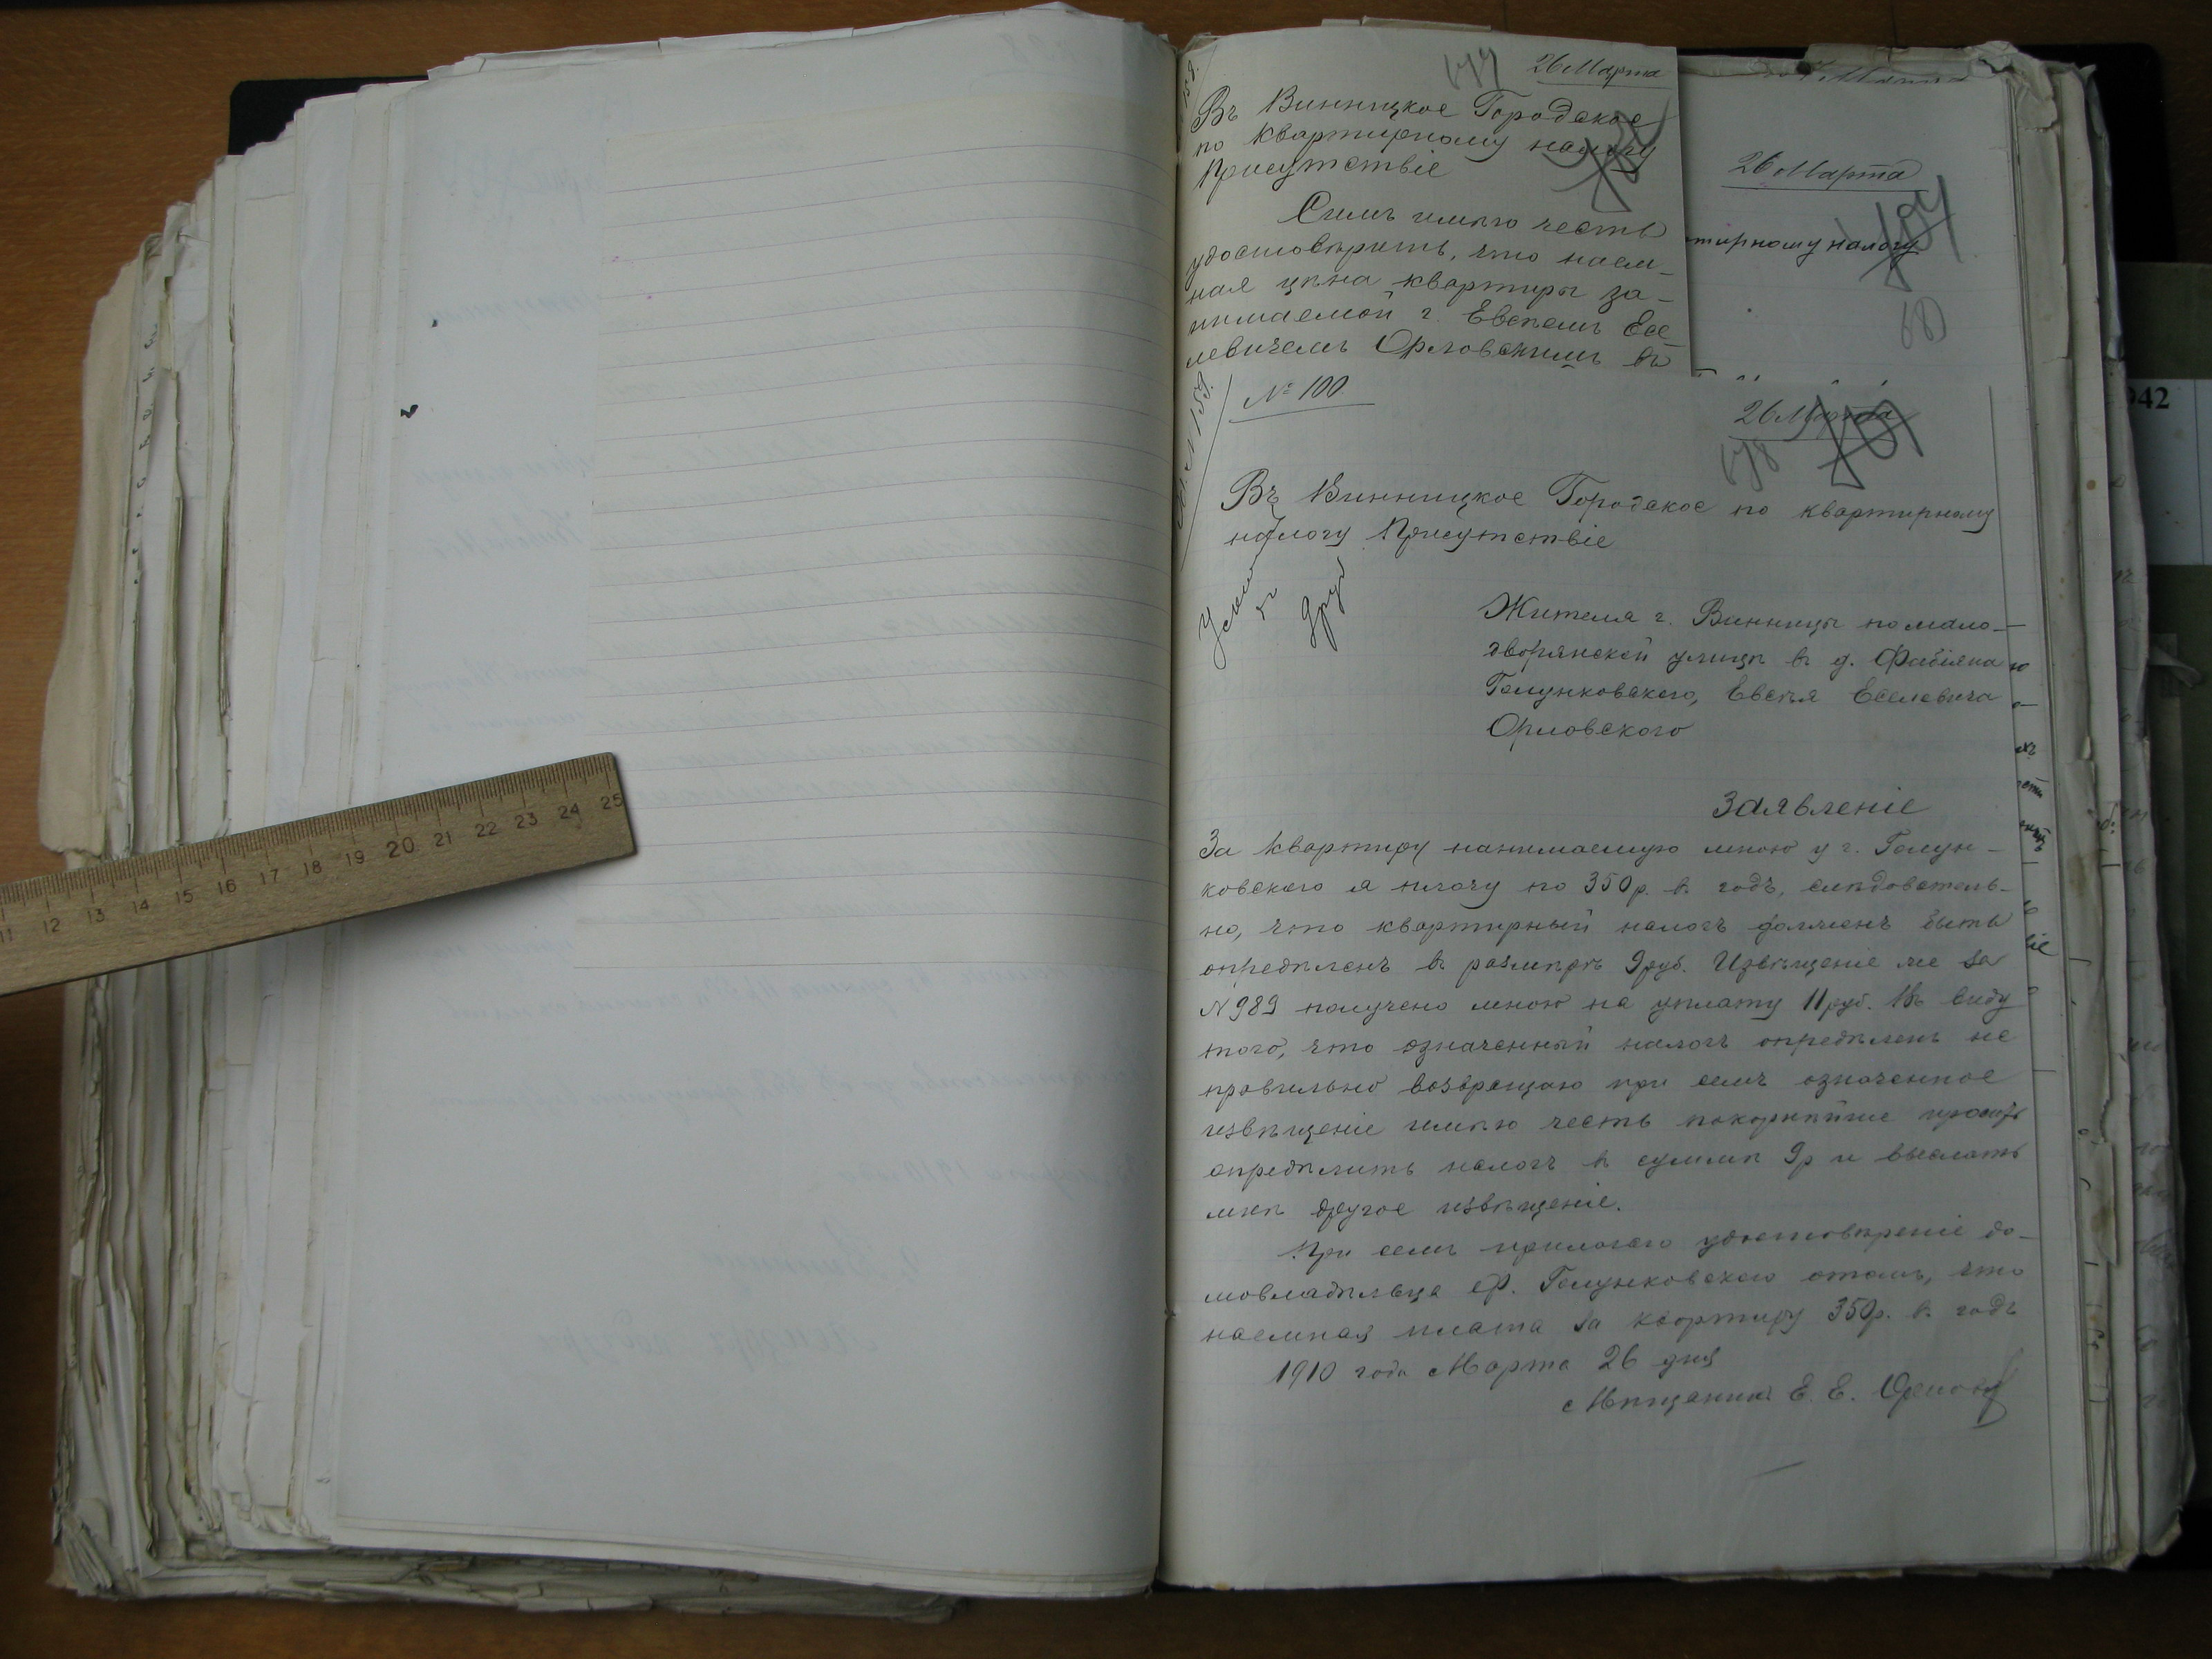 677
26 Марта
Въ Винницкое Городское
по квартирному налогу
Присутствіе
Симъ имѣю честь
удостовѣрить, что наем-
ная цѣна квартиры за-
нимаемой г. Евсѣемъ Есе
левичемъ Орловскимъ въ
26 Марта
тирному налогу
681
№ 100
26 Марта
678
Въ Винницкое Городское по квартирному
налогу Присутствіе
Жителя г. Винницы по мало-
дворянской улицѣ в д. Фабіяна
Голунковского, Евсѣя Еселевича
Орловского
Заявленіе
За квартиру нанимаемую мною у г. Голун-
ковского я плачу по 350 р. в годъ, слѣдователь-
но, что квартирный налогъ долженъ быть
опредѣленъ в размѣрѣ 9 руб. Извѣщеніе же за
№ 989 получено мною на уплату 11 руб. Въ виду
того, что означенный налогъ опредѣленъ не
правильно возвращаю при семъ означенное
извѣщеніе имѣю честь покорнѣйше просить
опредѣлить налогъ в суммѣ 9 р и выслать
мнѣ другое извѣщеніе.
При семъ прилагаю удостовѣреніе до-
мовладѣльца Ф. Голунковского отомъ, что
наемная плата за квартиру 350 р. в. годъ
1910 года Марта 26 дня
Мѣщанинъ Е. Е. Орловс
942
11 12 13 14 15 16 17 18 19 20 21 22 23 24 25